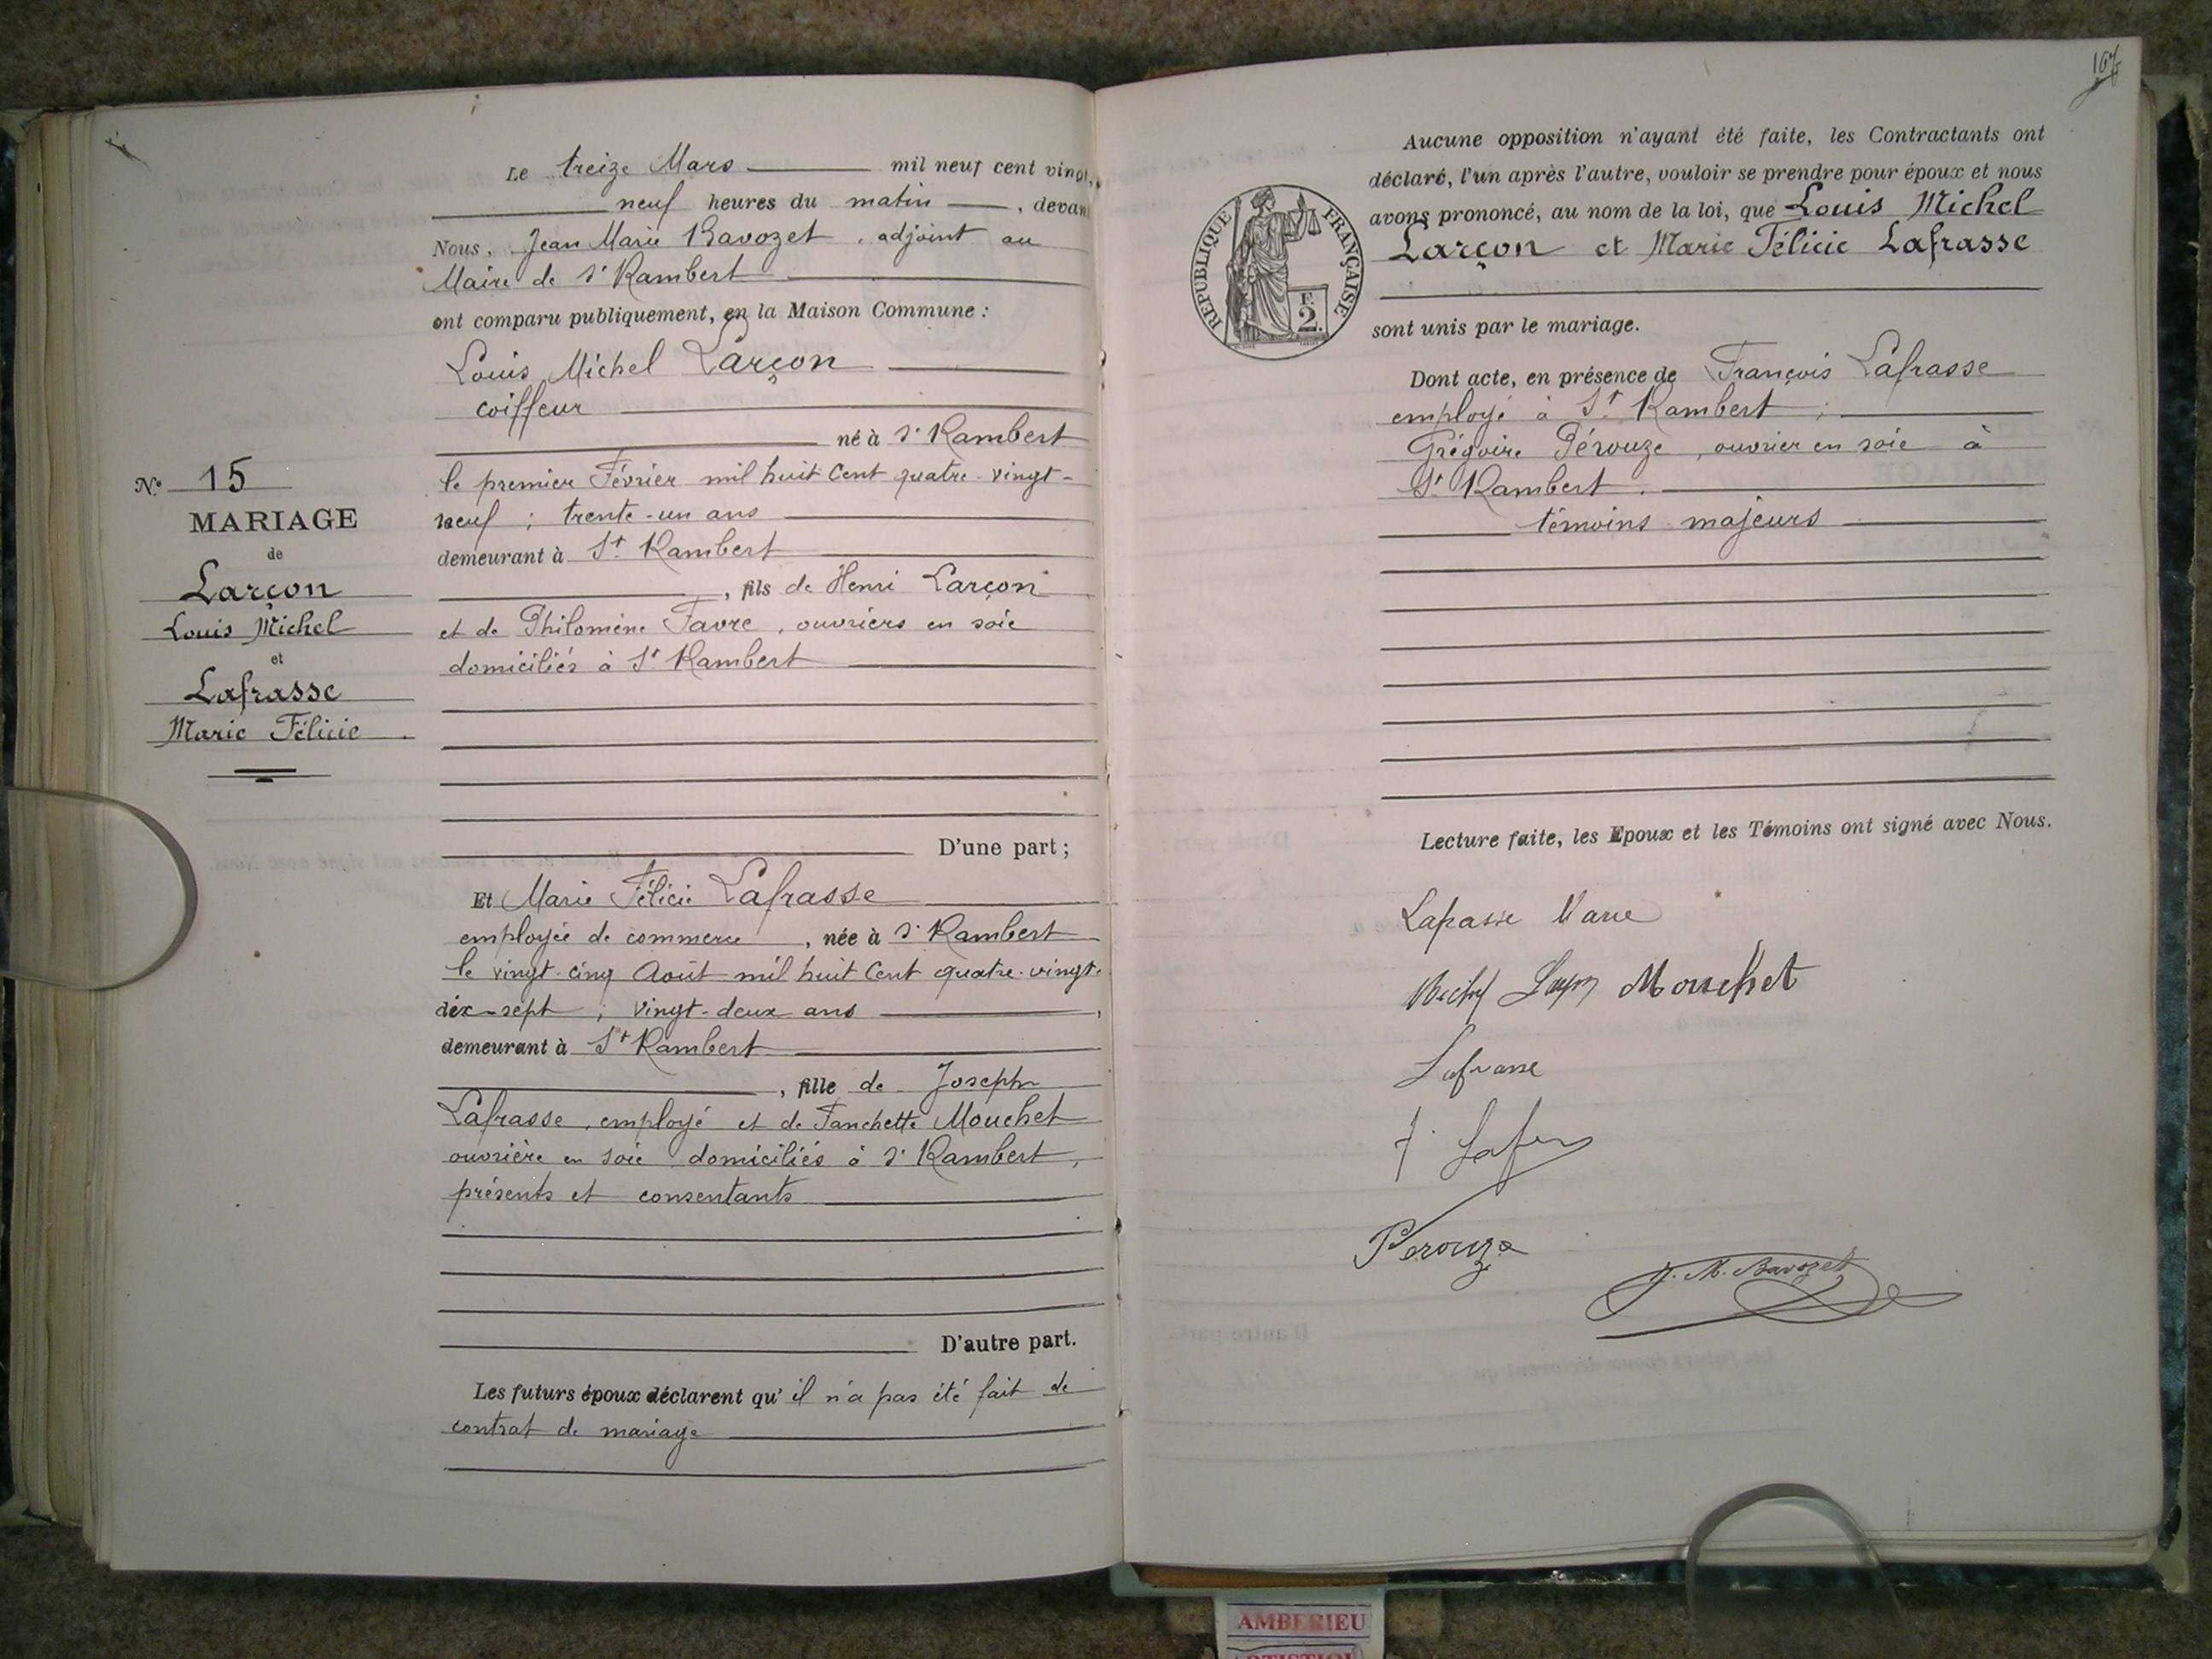 Le treize Mars mil neuf cent vingt,
neuf heures du matin, devant
Nous, Jean Marie Bavozet, adjoint au
Maire de St Rambert
ont comparu publiquement, en la Maison Commune :
Louis Michel Larçon
coiffeur
né à St Rambert
le premier Février mil huit Cent quatre-vingt-
neuf ; trente-un ans
demeurant à St Rambert
, fils de Henri Larçon
et de Philomène Favre, ouvriers en soie
domiciliés à St Rambert
D'une part ;
N° 15
MARIAGE
de
Larçon
Louis Michel
et
Lafrasse
Marie Félicie
Et Marie Félicie Lafrasse
employée de commerce, née à St Rambert
le vingt-cinq Août mil huit Cent quatre-vingt-
dix-sept ; vingt-deux ans,
demeurant à St Rambert
, fille de Joseph
Lafrasse, employé et de Fanchette Mouchet
ouvrière en soie domiciliés à St Rambert,
présents et consentants
D'autre part.
Les futurs époux déclarent qu'il n'a pas été fait de
contrat de mariage
107
Aucune opposition n'ayant été faite, les Contractants ont
déclaré, l'un après l'autre, vouloir se prendre pour époux et nous
avons prononcé, au nom de la loi, que Louis Michel
Larçon et Marie Félicie Lafrasse
sont unis par le mariage.
RÉPUBLIQUE FRANÇAISE
F.
2.
Dont acte, en présence de François Lafrasse
employé à St Rambert ;
Grégoire Pérouze, ouvrier en soie à
St Rambert.
témoins majeurs
Lecture faite, les Epoux et les Témoins ont signé avec Nous.
Lafrasse Marie
Mouchet
Lafrasse
Perouze
J. M. Bavozet
AMBERIEU